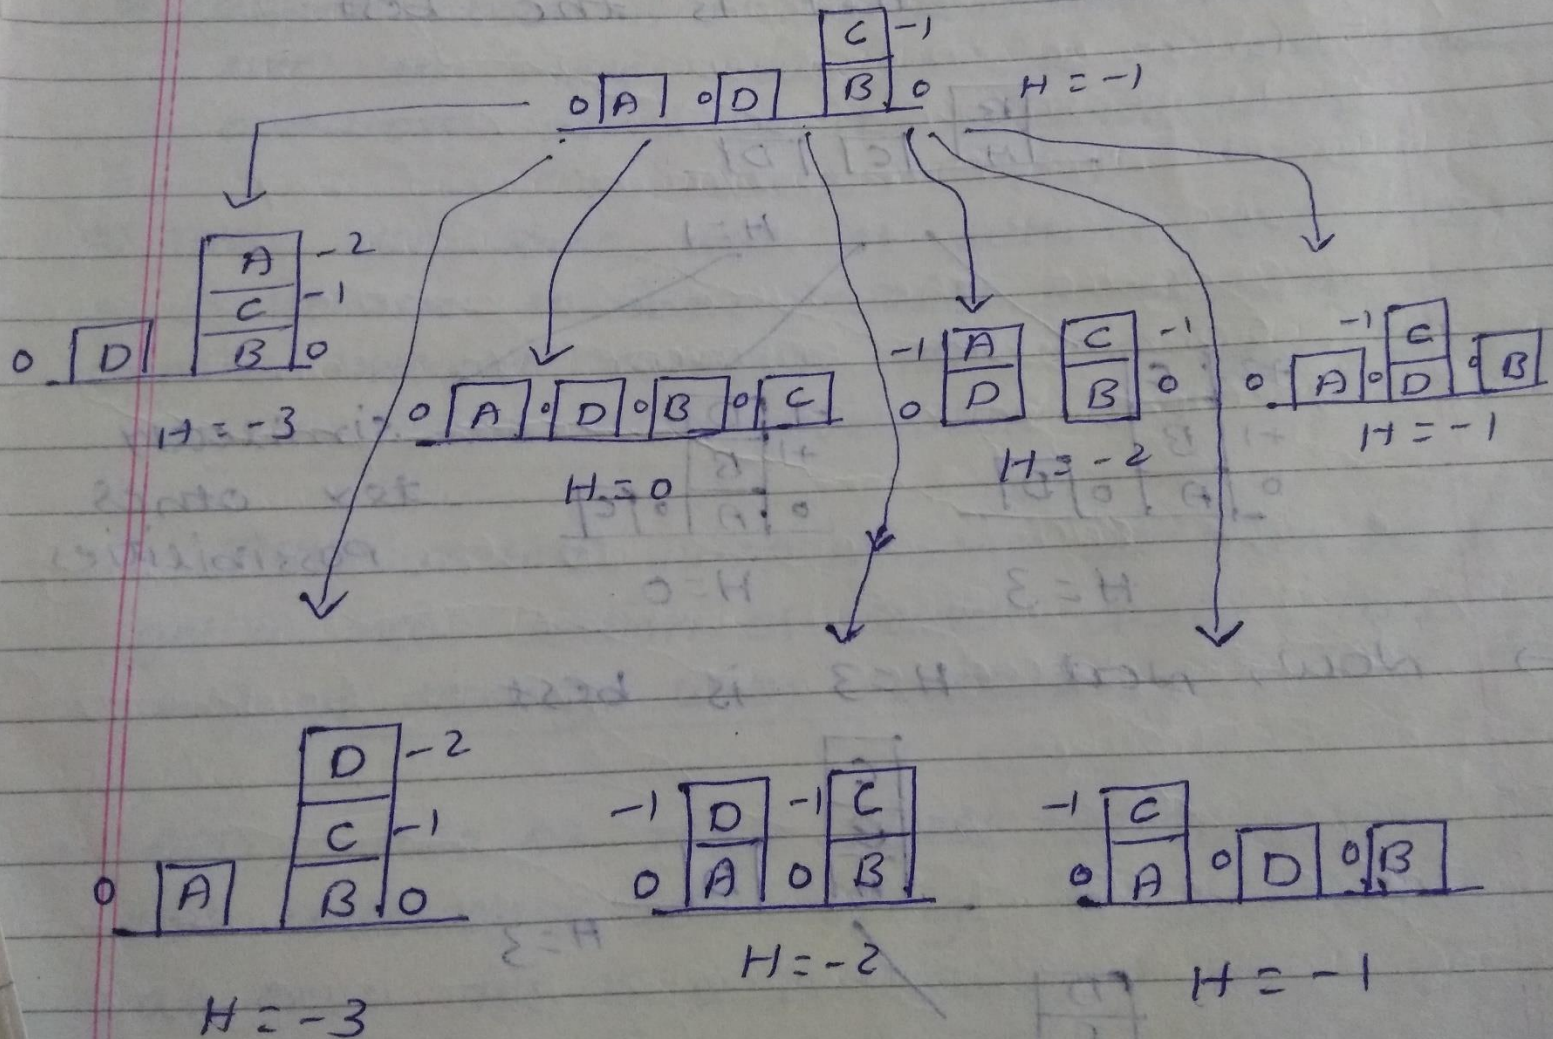 C -1
0 A 0 D B 0 H = -1
A -2
C -1
0 D B 0
H = -3
0 A 0 D 0 B 0 C
H = 0
-1 A C -1
0 D B 0
H = -2
-1 C
0 A 0 D 0 B
H = -1
D -2
C -1
0 A B 0
H = -3
-1 D -1 C
0 A 0 B
H = -2
-1 C
0 A 0 D 0 B
H = -1